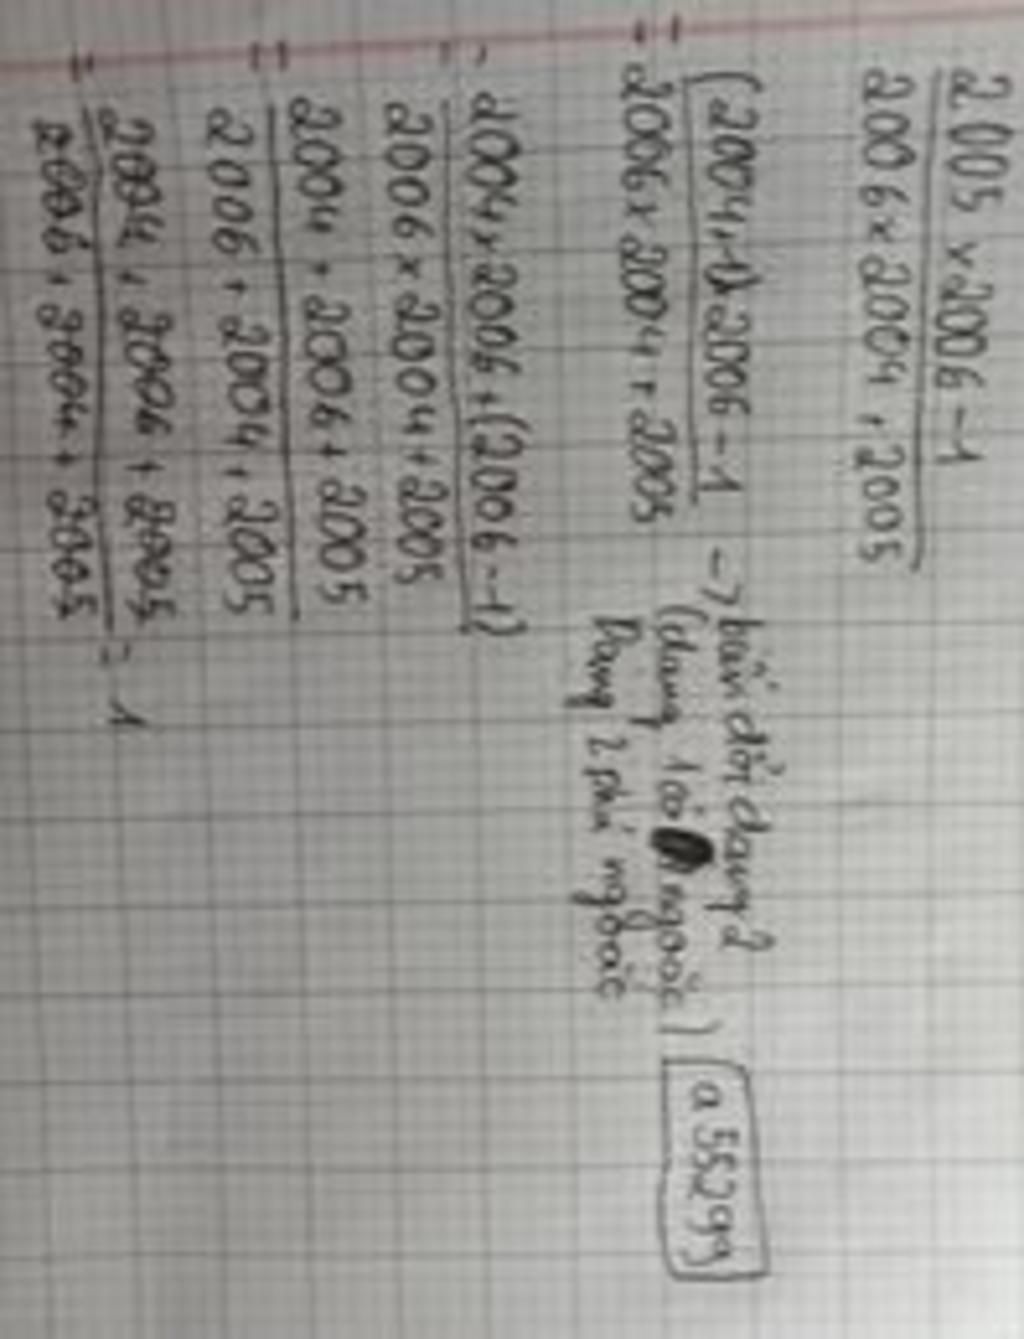 2005 x 2006 - 1
2006 x 2004 + 2005
= (2004+1) 2006 - 1
2006 x 2004 + 2005
-> biến đổi dạng 2
(dạng 1 có ngoặc)
Dạng 2 phá ngoặc
a 55299
= 2004 x 2006 + (2006 - 1)
2006 x 2004 + 2005
= 2004 + 2006 + 2005
2006 + 2004 + 2005
= 2004 + 2006 + 2005 = 1
2006 + 2004 + 2005